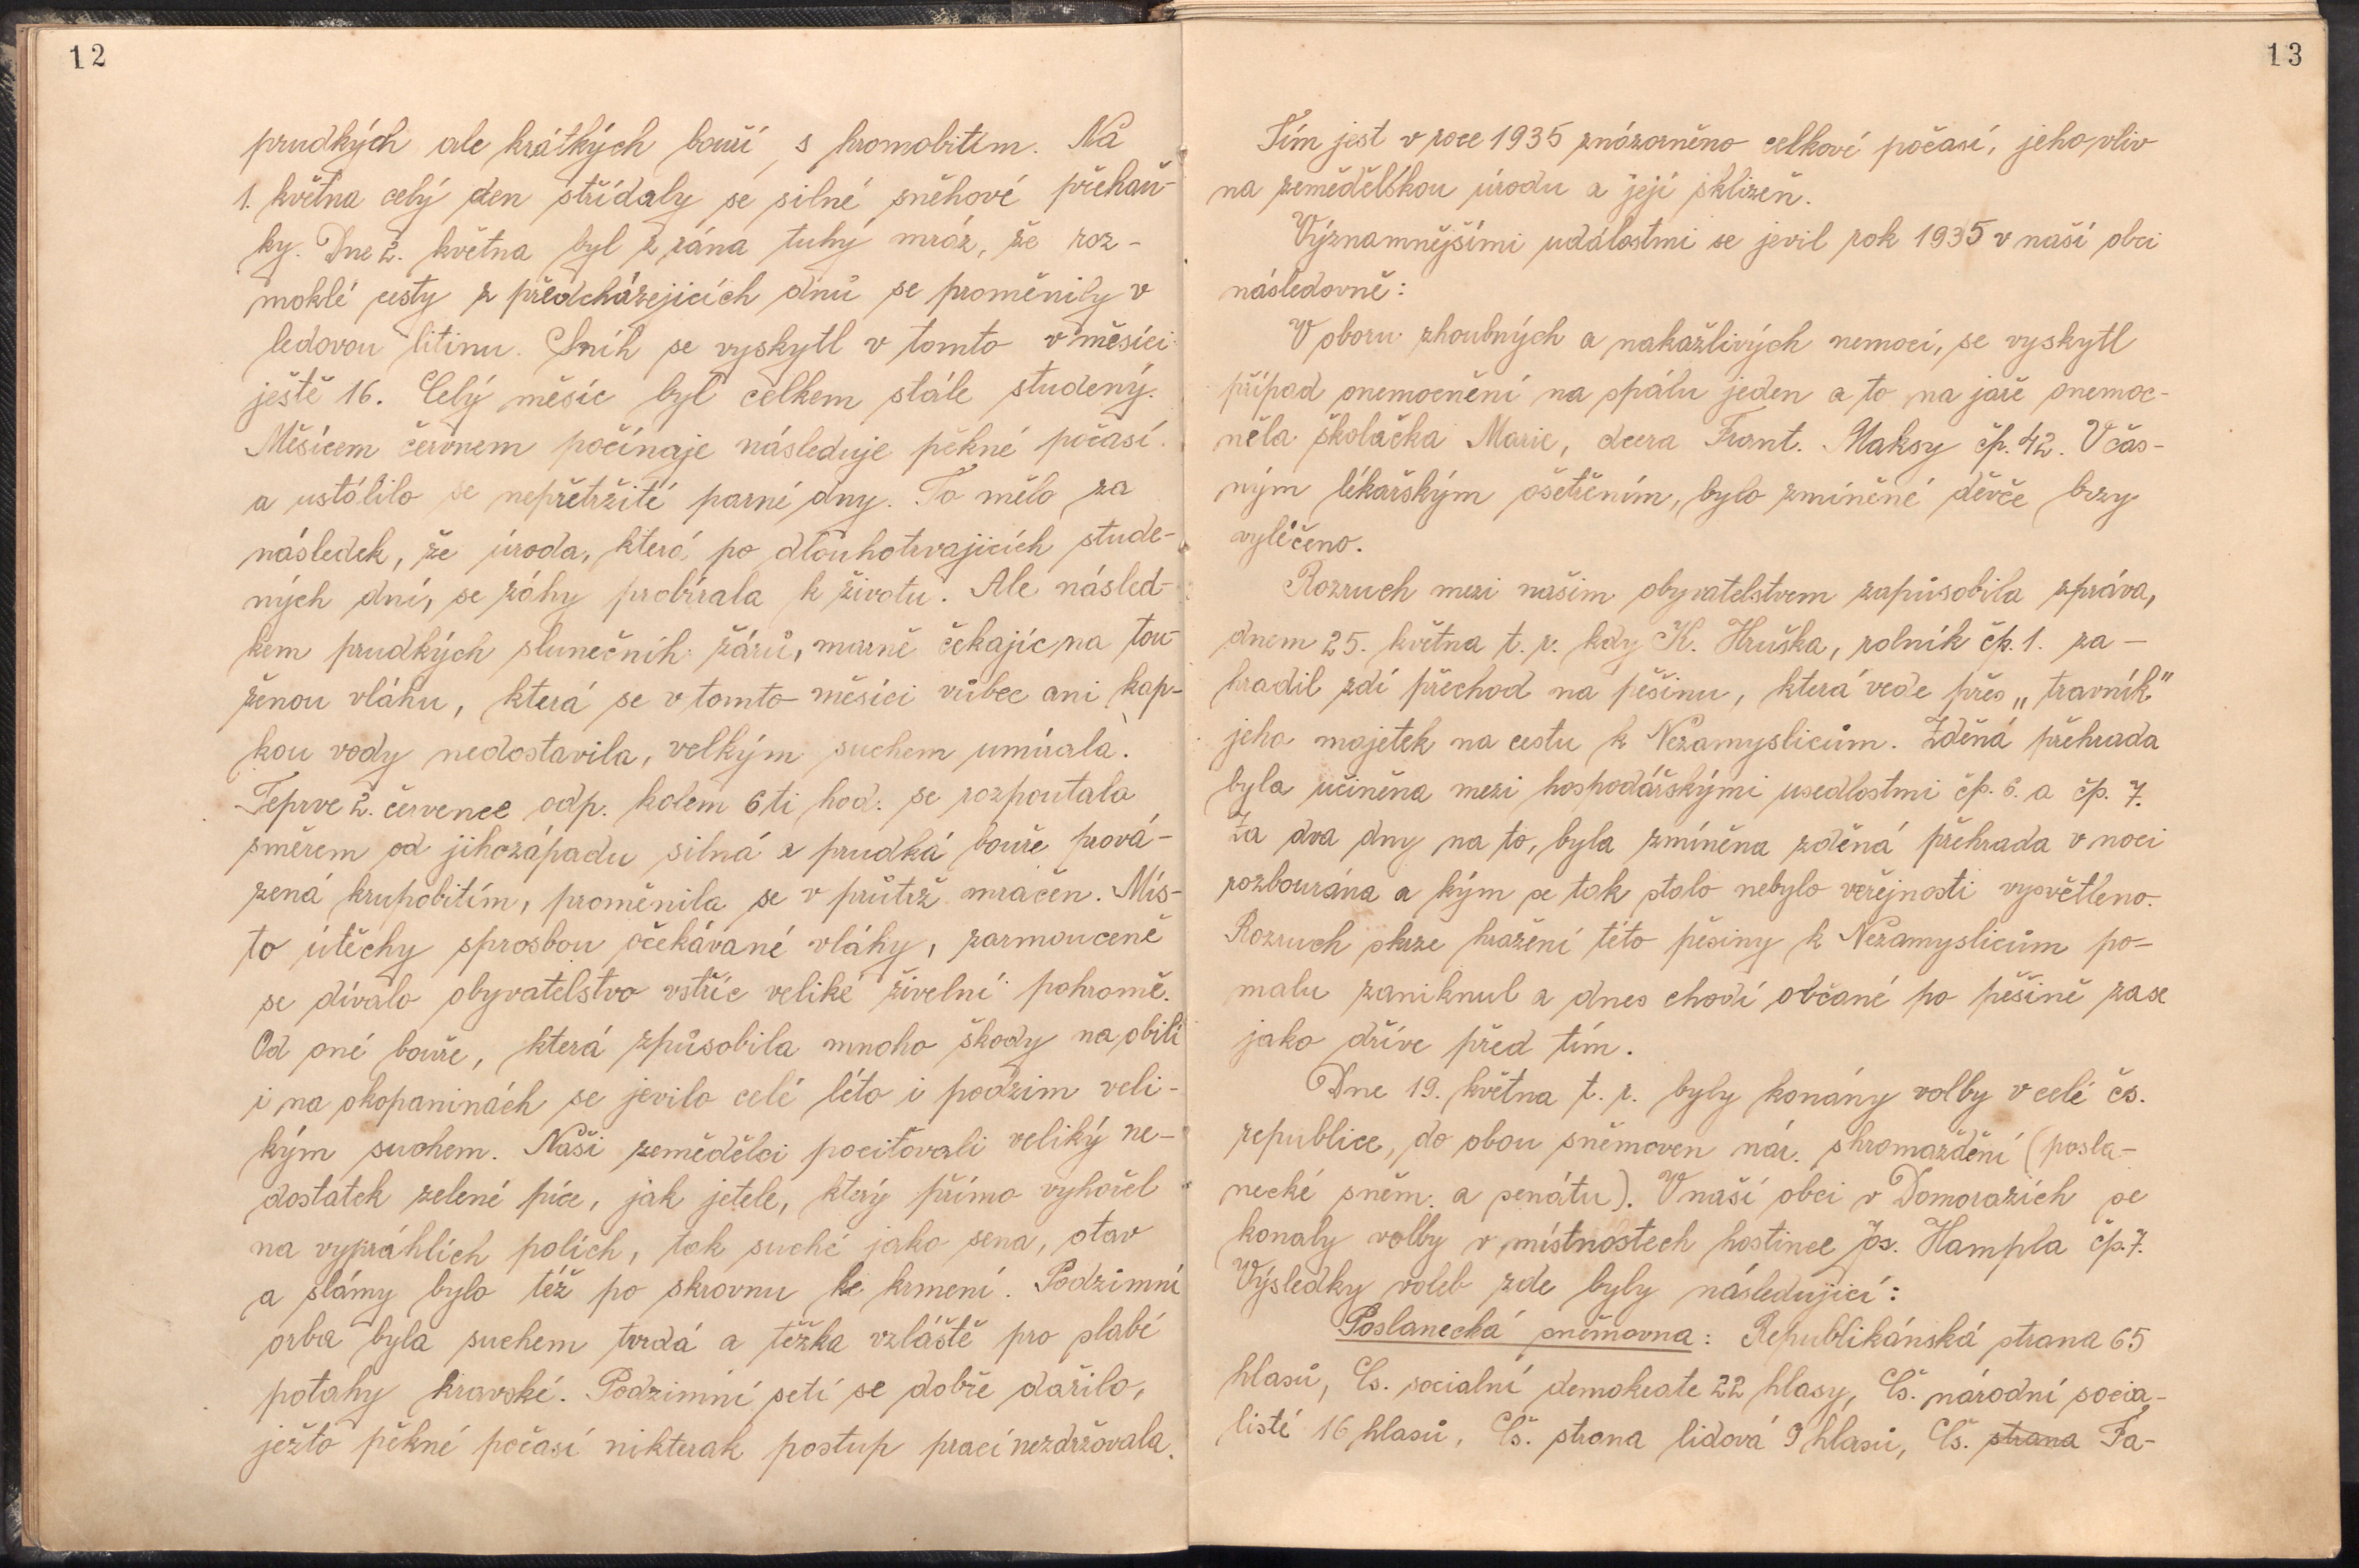 12
prudkých ale krátkých bouří s hromobitím. Na
1. května celý den střídaly se silné sněhové přehaň-
ky. Dne 2. května byl z rána tuhý mráz, že roz-
moklé cesty z předcházejicích dnů se proměnily v
ledovou litinu. Sníh se vyskytl v tomto v měsíci
ještě 16. Celý měsíc byl celkem stále studený.
Měsícem červnem počínaje následuje pěkné počasí.
a ustálilo se nepřetržité parné dny. To mělo za
následek, že úroda, která po dlouhotrvajicích stude-
ných dní, se záhy probírala k životu. Ale násled-
kem prudkých slunečníh žárů, marně čekajíc na tou-
ženou vláhu, která se v tomto měsíci vůbec ani kap-
kou vody nedostavila, velkým suchem umírala.
Teprve 2. července odp. kolem 6ti hod. se rozpoutala
směrem od jihozápadu silná a prudká bouře prová-
zená krupobitím, proměnila se v průtrž mračen. Mís-
to útěchy sprosbou očekávané vláhy, zarmouceně
se dívalo obyvatelstvo vstříc veliké živelní pohromě.
Od oné bouře, která způsobila mnoho škody na obilí
i na okopaninách se jevilo celé léto i podzim veli-
kým suchem. Naši zemědělci pociťovali veliký ne-
dostatek zelené píce, jak jetele, který přímo vyhořel
na vypráhlích polích, tak suché jako sena, otav
a slámy bylo též po skrovnu ke krmení. Podzimní
orba byla suchem tvrdá a těžka vzláště pro slabé
potahy kravské. Podzimní setí se dobře dařilo,
ježto pěkné počasí nikterak postup prací nezdržovala.
13
Tím jest v roce 1935 znázorněno celkové počasí, jeho vliv
na zemědělskou úrodu a její sklizeň.
Významnějšími událostmi se jevil rok 1935 v naší obci
následovně:
V oboru zhoubných a nakažlivých nemocí, se vyskytl
případ onemocnění na spálu jeden a to na jaře onemoc-
něla školačka Marie, dcera Frant. Maksy čp. 42. Včas-
ným lékařským ošetřením, bylo zmíněné děvče brzy
vyléčeno.
Rozruch mezi našim obyvatelstvem zapůsobila zpráva,
dnem 25. května t. r. kdy K. Hruška, rolník čp. 1. za-
hradil zdí přechod na pěšinu, která vede přes „travník"
jeho majetek na cestu k Nezamyslicům. Zděná přehrada
byla učiněna mezi hospodářskými usedlostmi čp. 6. a čp. 7.
Za dva dny na to, byla zmíněna zděná přehrada v noci
rozbourána a kým se tak stalo nebylo veřejnosti vysvětleno.
Rozruch skrze hražení této pěsiny k Nezamyslicům po-
malu zaniknul a dnes chodí občané po pěšině zase
jako dříve před tím.
Dne 19. května t. r. byly konány volby v celé čs.
republice, do obou sněmoven nár. shromaždění (posla-
necké sněm. a senátu). V naší obci v Domoražích se
konaly volby v místnostech hostince Js. Hampla čp. 7.
Výsledky voleb zde byly následujicí:
Poslanecká sněmovna: Republikánská strana 65
hlasů, Čs. socialní demokrate 22 hlasy, Čs. národní socia-
listé 16 hlasů, Čs. strana lidová 9 hlasů, Čs. strana Fa-